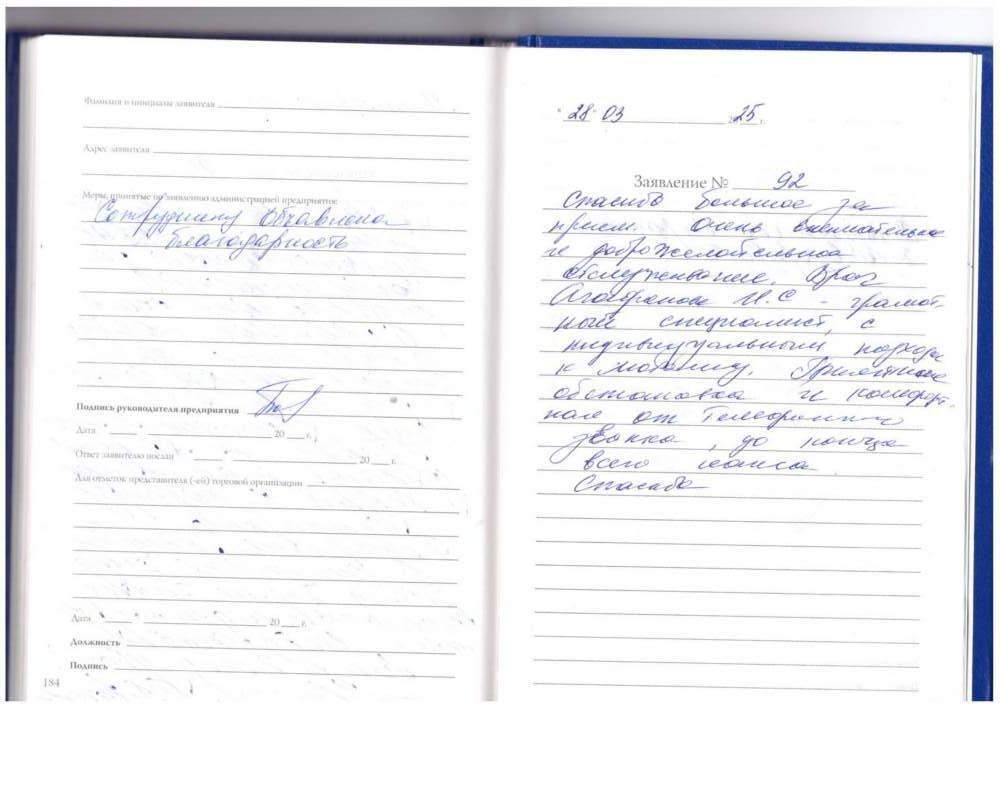 Фамилия и инициалы заявителя
Адрес заявителя
Меры, принятые по заявлению администрацией предприятия:
Сотруднику объявлена
благодарность
Подпись руководителя предприятия
Дата " " 20 г.
Ответ заявителю послан " " 20 г.
Для отметок представителя (-ей) торговой организации
Дата " " 20 г.
Должность
Подпись
184
" 28 " 03 25 г.
Заявление № 92
Спасибо большое за
прием. Очень внимательное
и доброжелательное
обслуживание. Врач
И.С - грамот-
ный специалист, с
индивидуальным подходом
к Приятная
обстановка и комфорт-
ная от телефонного
звонка, до конца
всего сеанса.
Спасибо